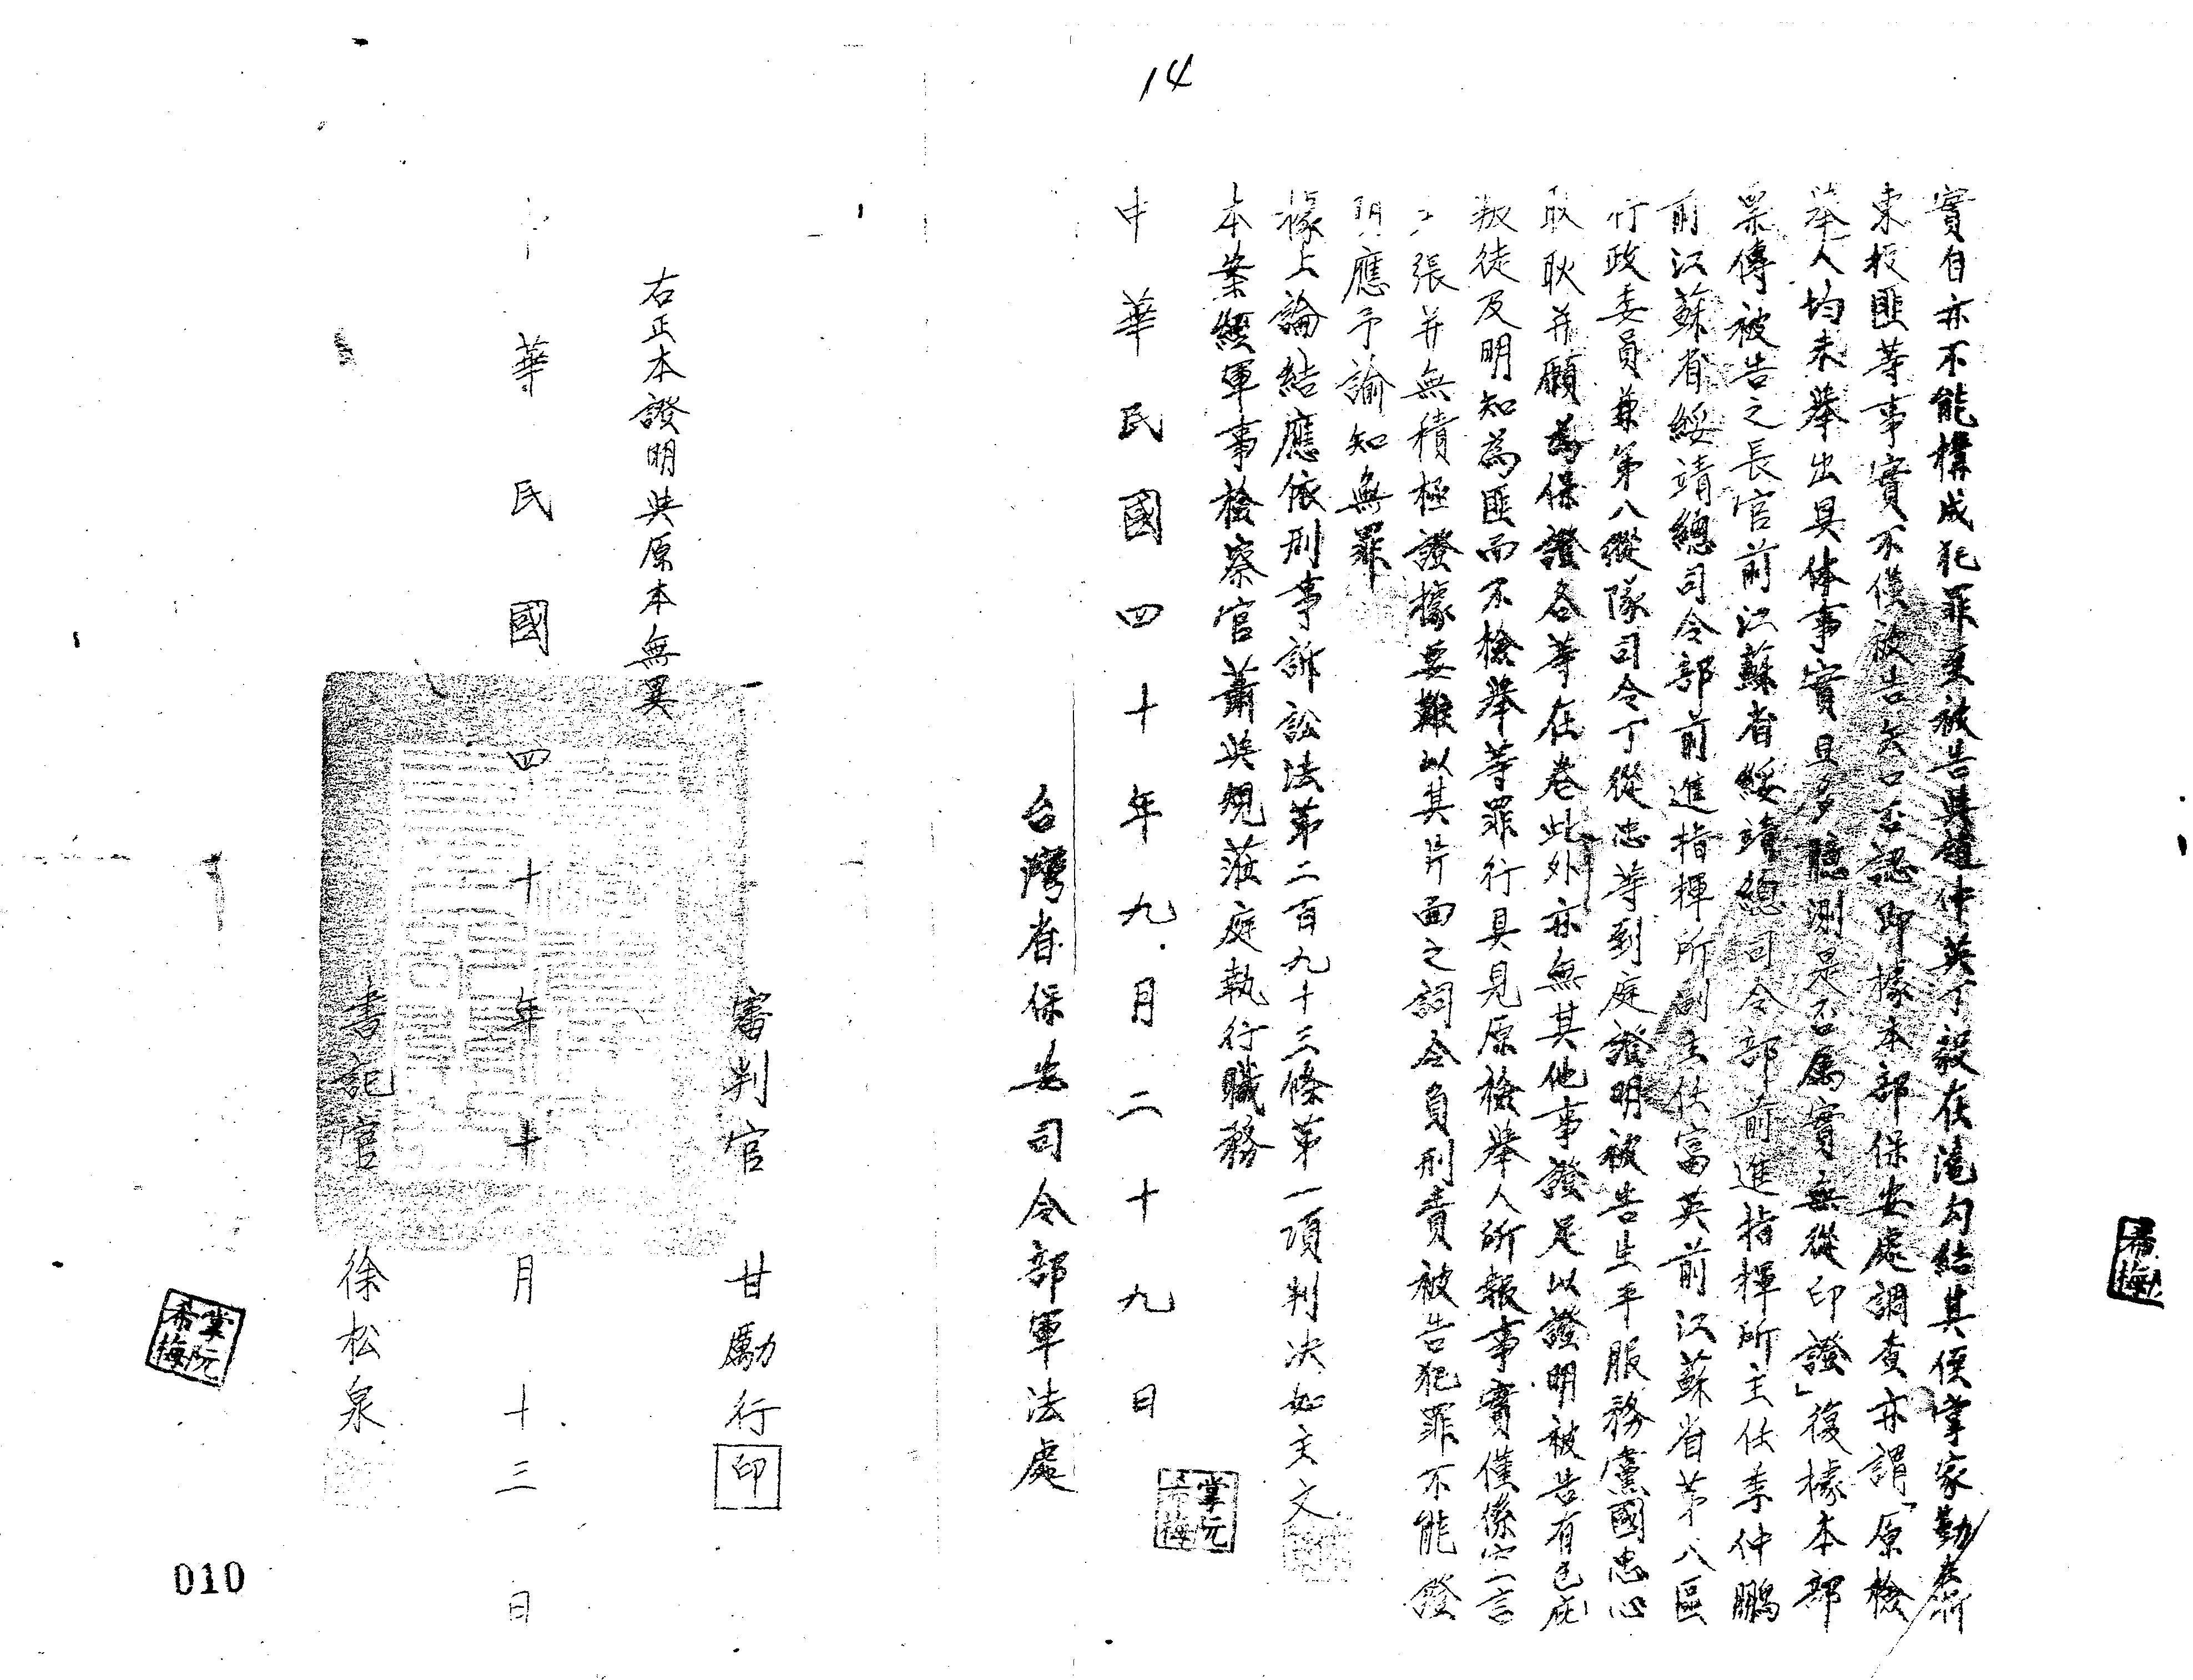 14
實自亦不能構成犯罪至被告與趙仲英丁毅在滬勾結其侄掌家勤在新
東投匪等事實不僅被告矢口否認即據本部保安處調查亦謂「原檢
舉人均未舉出具体事實且多臆測是否屬實無從印證」復據本部
票傳被告之長官前江蘇省綏靖總司令部前進指揮所主任李仲鵬
前江蘇省綏靖總司令部前進指揮所副主任富英前江蘇省第八區
行政委員兼第八縱隊司令丁從忠等到庭證明被告生平服務黨國忠心
耿耿并願為保證各等在卷此外亦無其他事證足以證明被告有包庇
叛徒及明知為匪而不檢舉等罪行具見原檢舉人所報事實僅係空言
主張并無積極證據要難以其片面之詞令負刑責被告犯罪不能證
明應予諭知無罪
據上論結應依刑事訴訟法第二百九十三條第一項判決如主文
本案經軍事檢察官蕭與規蒞庭執行職務
中華民國四十年九月二十九日
掌阮希梅
台灣省保安司令部軍法處
審判官 甘勵行 印
右正本證明與原本無異
中華民國四十年十月十三日
書記官 徐松泉
掌阮希梅
希梅
010